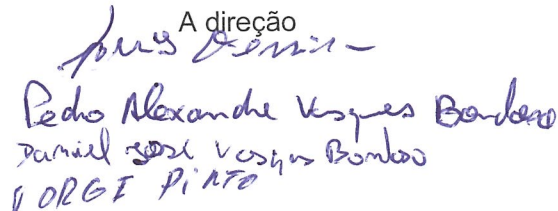 A direção
Pedro Alexandre Vasques Bondoso
Daniel José Vasques Bondoso
JORGE PINTO